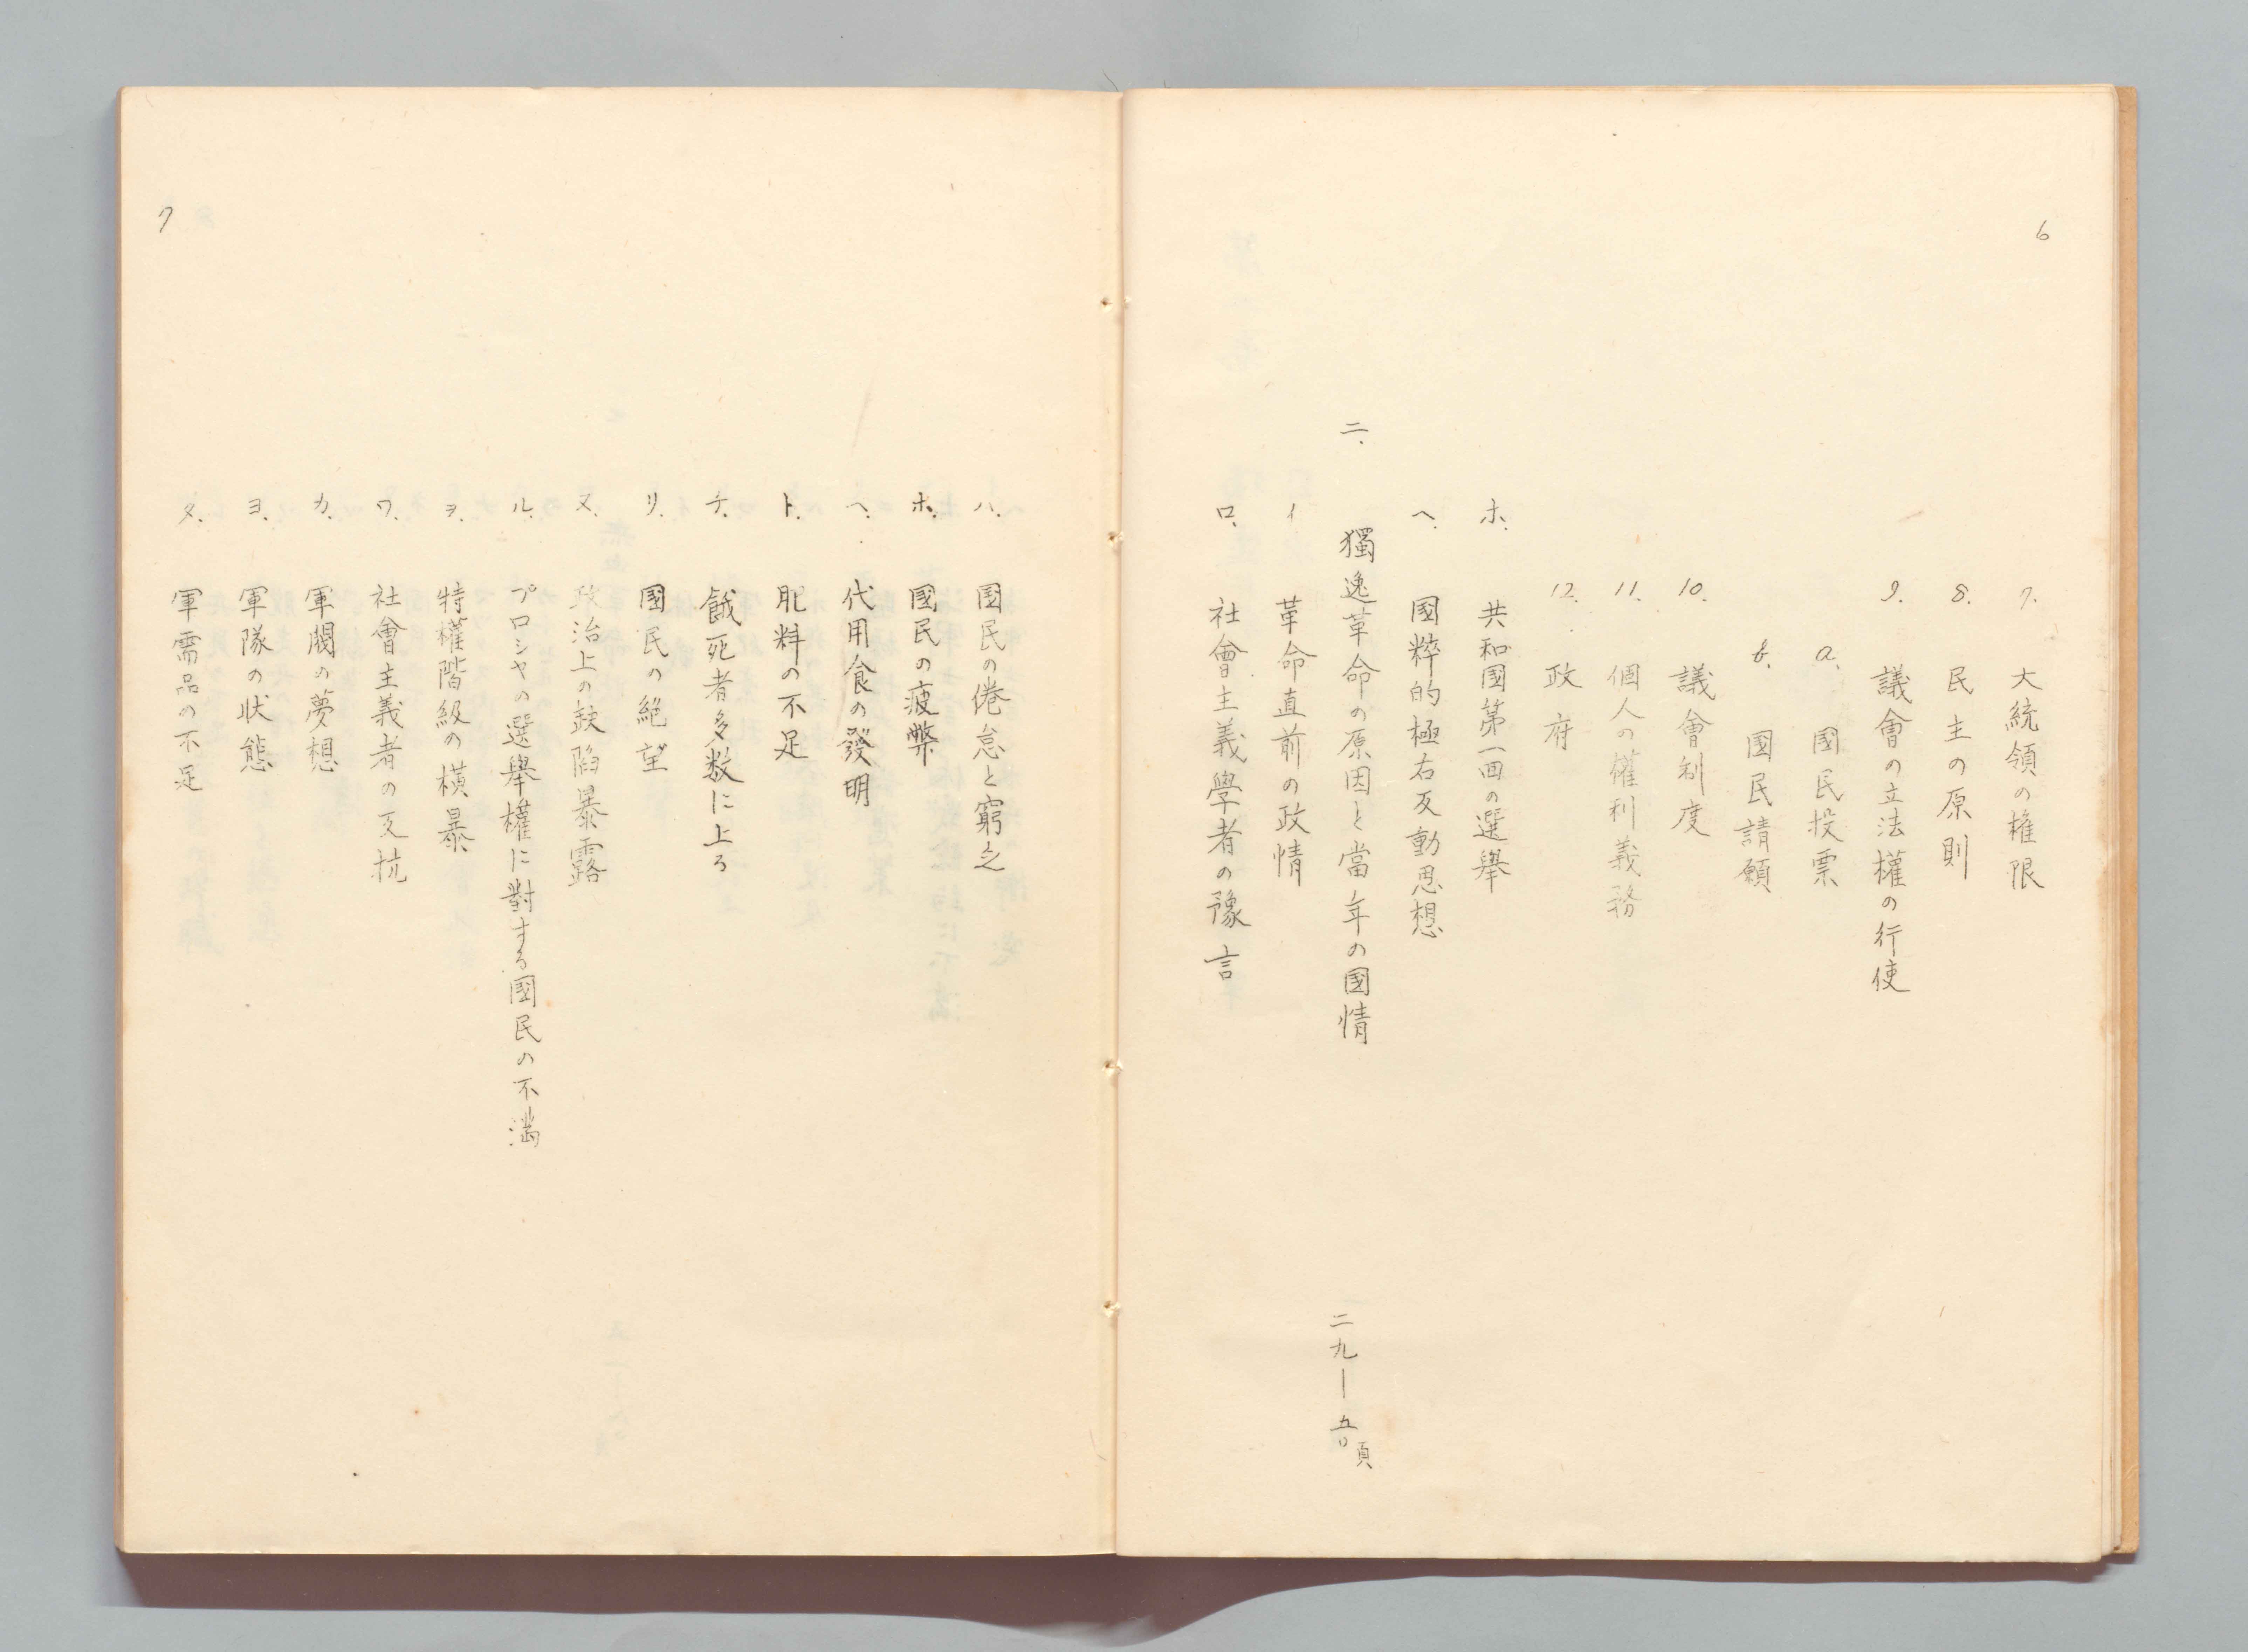 6
7. 大統領の権限
8. 民主の原則
9. 議會の立法權の行使
a. 國民投票
b. 國民請願
10. 議會制度
11. 個人の權利義務
12. 政府
ホ. 共和國第一回の選擧
ヘ. 國粹的極右反動思想
二. 獨逸革命の原因と當年の國情 二九―五〇頁
イ 革命直前の政情
ロ. 社會主義學者の豫言
7
ハ. 國民の倦怠と窮乏
ホ. 國民の疲弊
ヘ. 代用食の發明
ト. 肥料の不足
チ. 餓死者多数に上る
リ. 國民の絶望
ヌ. 政治上の缺陷暴露
ル. プロシヤの選擧權に對する國民の不満
ヲ. 特權階級の横暴
ワ. 社會主義者の反抗
カ. 軍閥の夢想
ヨ. 軍隊の状態
タ. 軍需品の不足